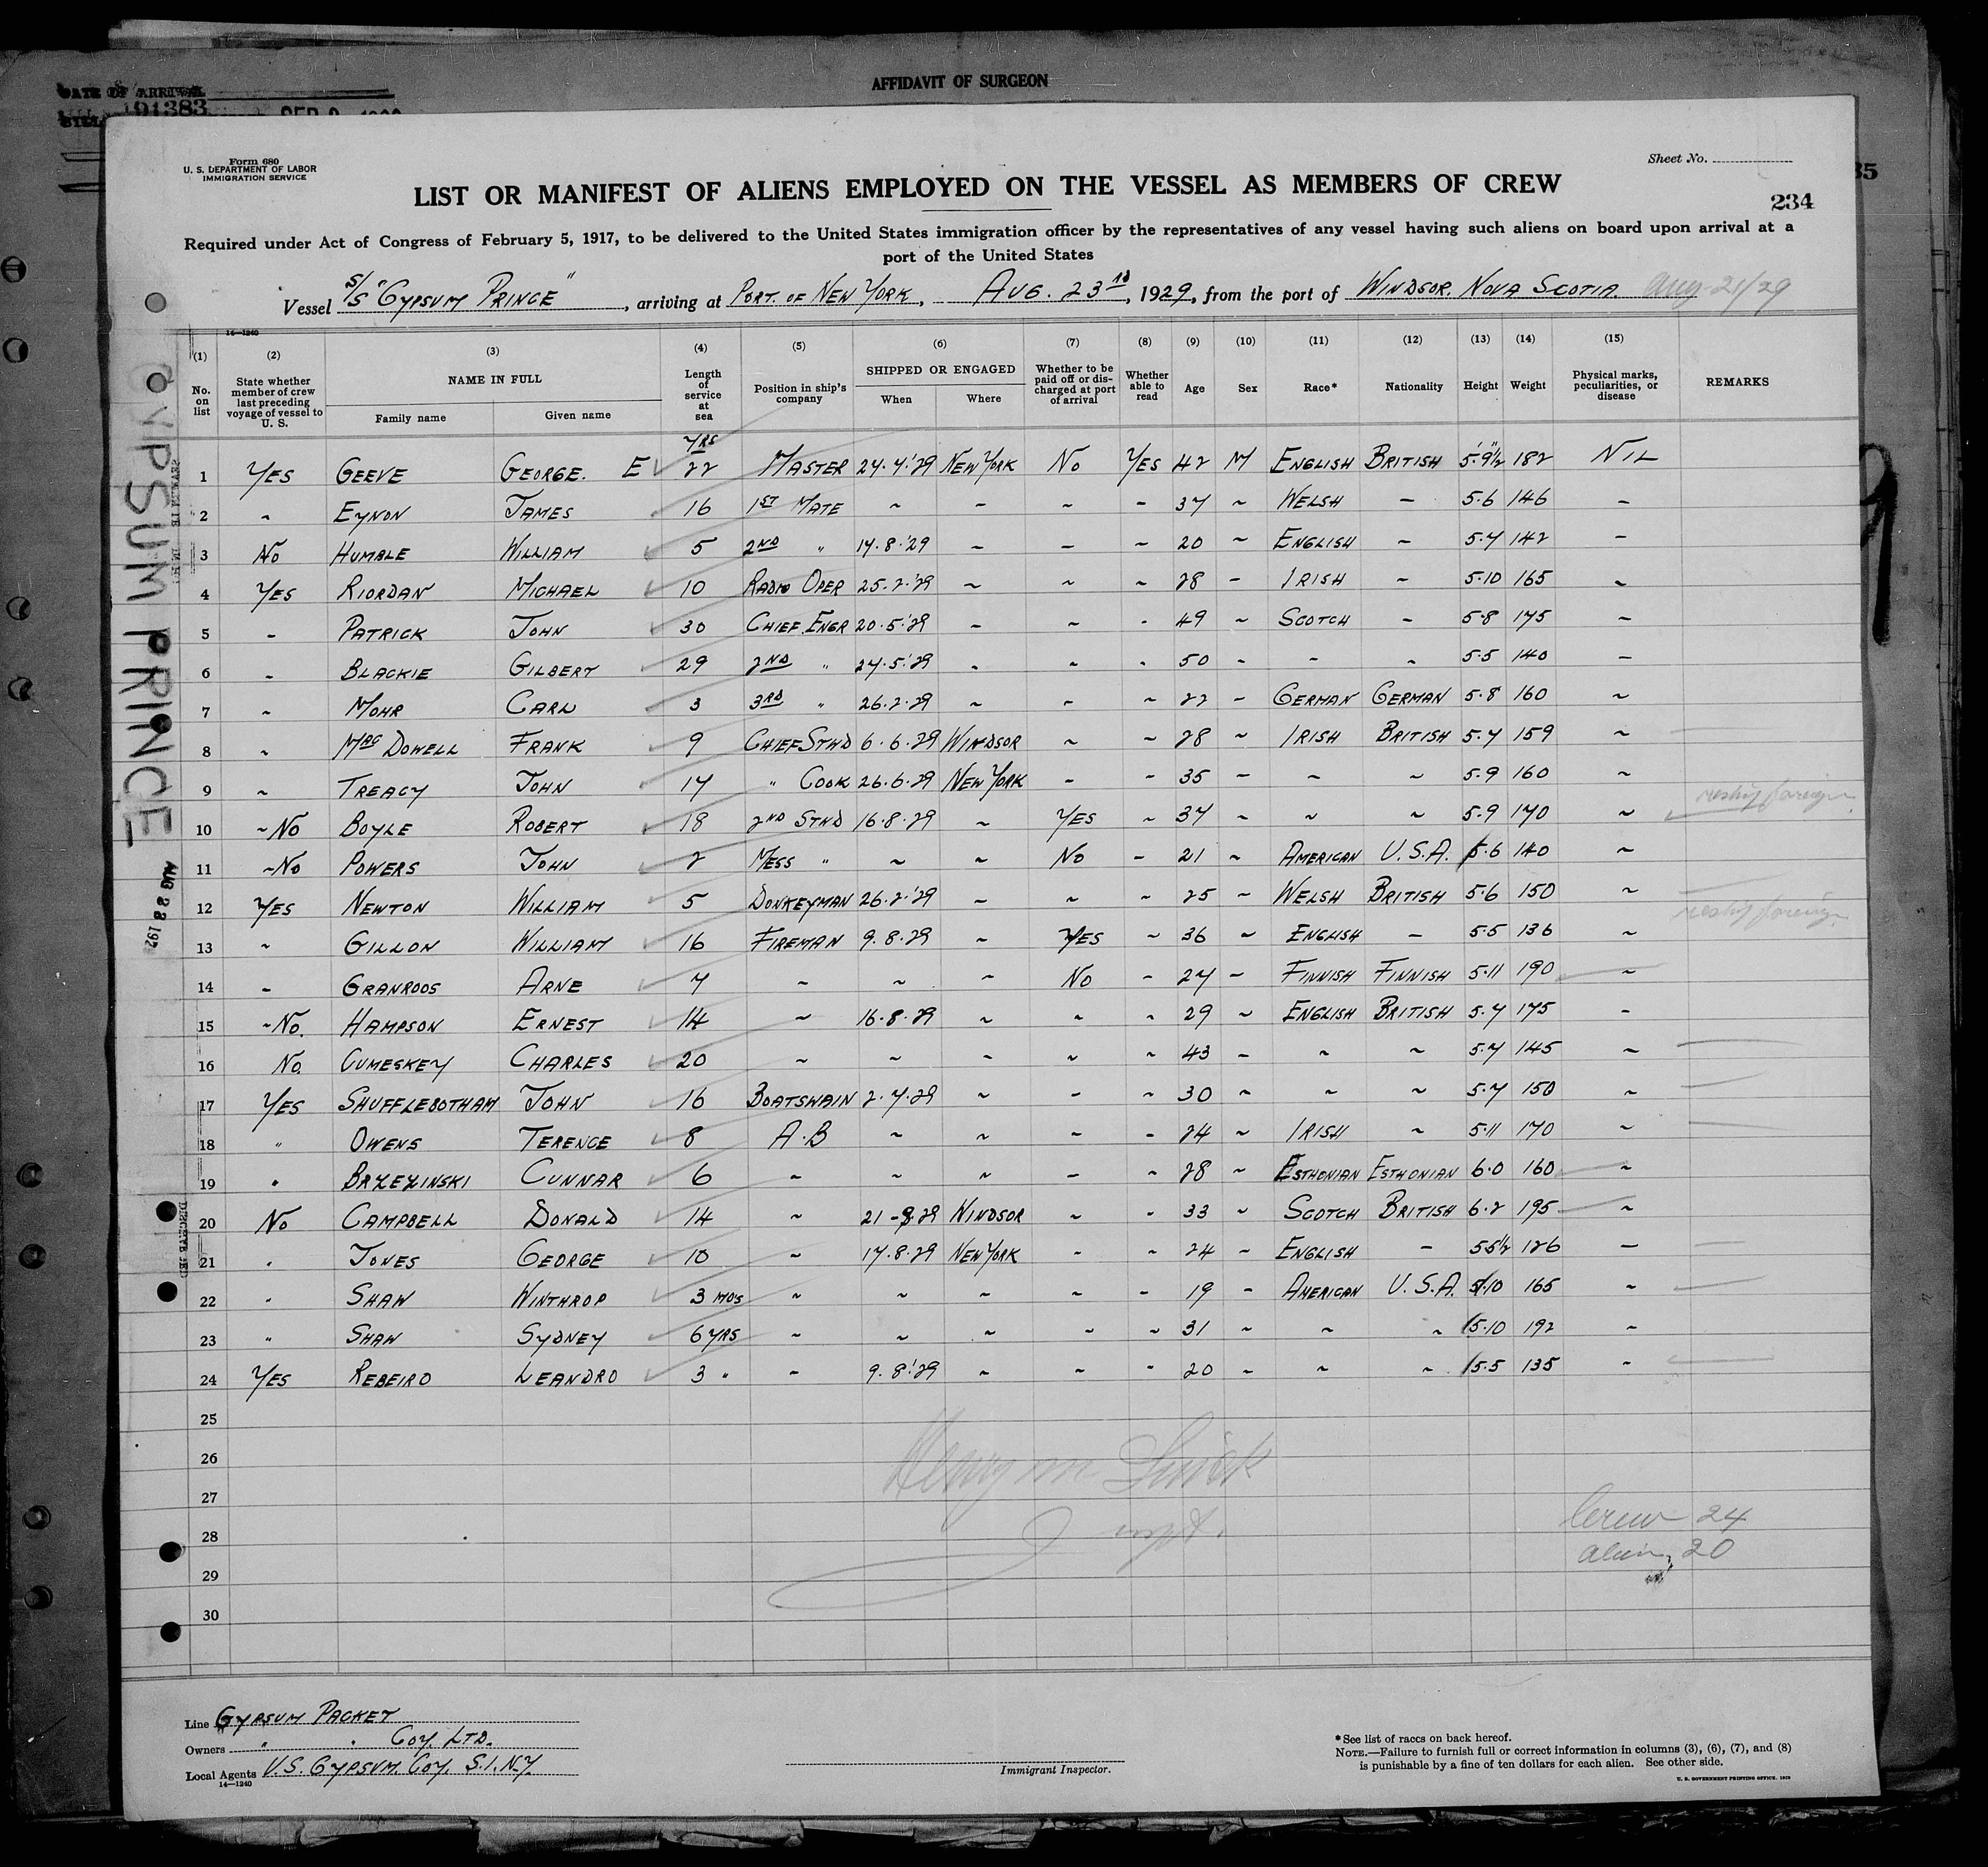 AFFIDAVIT OF SURGEON
DATE OF ARRIVAL
91383
Form 680
U. S. DEPARTMENT OF LABOR
IMMIGRATION SERVICE
Sheet No.
LIST OR MANIFEST OF ALIENS EMPLOYED ON THE VESSEL AS MEMBERS OF CREW
234
35
Required under Act of Congress of February 5, 1917, to be delivered to the United States immigration officer by the representatives of any vessel having such aliens on board upon arrival at a
port of the United States
Vessel S/S "GYPSUM PRINCE", arriving at PORT. OF NEW YORK, AUG. 23rd, 1929, from the port of WINDSOR. NOVA SCOTIA. Aug 21/29
14—1240
(1) (2) (3) (4) (5) (6) (7) (8) (9) (10) (11) (12) (13) (14) (15)
No. on list
State whether member of crew last preceding voyage of vessel to U. S.
NAME IN FULL
Family name
Given name
Length of service at sea
Position in ship's company
SHIPPED OR ENGAGED
When
Where
Whether to be paid off or discharged at port of arrival
Whether able to read
Age
Sex
Race*
Nationality
Height
Weight
Physical marks, peculiarities, or disease
REMARKS
YRS
1 YES GEEVE GEORGE. E 22 MASTER 24.4.'29 NEW YORK NO YES 42 M ENGLISH BRITISH 5'.9½" 182 NIL
2 ~ EYNON JAMES 16 1ST MATE ~ - ~ - 37 ~ WELSH - 5.6 146 -
3 NO HUMBLE WILLIAM 5 2ND " 17.8.'29 ~ - ~ 20 ~ ENGLISH ~ 5.7 142 -
4 YES RIORDAN MICHAEL 10 RADIO OPER 25.2.'29 ~ ~ ~ 28 - IRISH - 5.10 165 ~
5 - PATRICK JOHN 30 CHIEF. ENGR 20.5.'29 - ~ - 49 ~ SCOTCH - 5.8 175 -
6 - BLACKIE GILBERT 29 2ND " 24.5.'29 ~ ~ ~ 50 - - ~ 5.5 140 -
7 ~ MOHR CARL 3 3RD " 26.2.29 ~ - ~ 22 - GERMAN GERMAN 5.8 160 ~
8 ~ MAC DOWELL FRANK 9 CHIEF STWD 6.6.29 WINDSOR ~ ~ 28 ~ IRISH BRITISH 5.7 159 ~
9 ~ TREACY JOHN 17 " COOK 26.6.29 NEW YORK - - 35 - ~ ~ 5.9 160 ~
10 ~NO BOYLE ROBERT 18 2ND STWD 16.8.29 ~ YES ~ 37 ~ ~ ~ 5.9 170 ~ reship foreign
11 ~NO POWERS JOHN 2 MESS " ~ ~ NO - 21 ~ AMERICAN U.S.A. 5.6 140 ~
12 YES NEWTON WILLIAM 5 DONKEYMAN 26.2.'29 - ~ ~ 25 ~ WELSH BRITISH 5.6 150 ~
13 ~ GILLON WILLIAM 16 FIREMAN 9.8.29 ~ YES ~ 36 ~ ENGLISH - 5.5 136 ~ reship foreign
14 - GRANROOS ARNE 7 ~ ~ ~ NO - 27 - FINNISH FINNISH 5.11 190 ~
15 ~NO. HAMPSON ERNEST 14 ~ 16.8.29 ~ ~ ~ 29 ~ ENGLISH BRITISH 5.7 175 -
16 NO. CUMESKEY CHARLES 20 ~ ~ ~ ~ ~ 43 - ~ ~ 5.7 145 ~
17 YES SHUFFLEBOTHAM JOHN 16 BOATSWAIN 2.7.29 ~ - ~ 30 ~ ~ ~ 5.7 150 ~
18 " OWENS TERENCE 8 A.B ~ ~ ~ - 24 ~ IRISH ~ 5.11 170 ~
19 " BRZEZINSKI GUNNAR 6 ~ ~ ~ - ~ 28 ~ ESTHONIAN ESTHONIAN 6.0 160 ~
20 NO CAMPBELL DONALD 14 ~ 21-8-29 WINDSOR ~ ~ 33 ~ SCOTCH BRITISH 6.2 195 ~
21 " JONES GEORGE 10 ~ 17.8.29 NEW YORK - ~ 24 ~ ENGLISH - 5.5½ 126 -
22 " SHAW WINTHROP 3 MOS ~ ~ ~ ~ - 19 - AMERICAN U.S.A. 5.10 165 ~
23 " SHAW SYDNEY 6 YRS ~ ~ ~ ~ ~ 31 ~ ~ ~ 5.10 192 ~
24 YES REBEIRO LEANDRO 3 " - 9.8.'29 ~ ~ - 20 ~ ~ ~ 5.5 135 ~
25
26
27
28
29
30
Henry M
Inspt.
Crew 24
Aliens 20
GYPSUM PRINCE
Line GYPSUM PACKET
Owners " " COY. LTD.
Local Agents U.S. GYPSUM. COY. S.I. N.Y.
14—1240
Immigrant Inspector.
*See list of races on back hereof.
NOTE.—Failure to furnish full or correct information in columns (3), (6), (7), and (8)
is punishable by a fine of ten dollars for each alien. See other side.
U. S. GOVERNMENT PRINTING OFFICE.